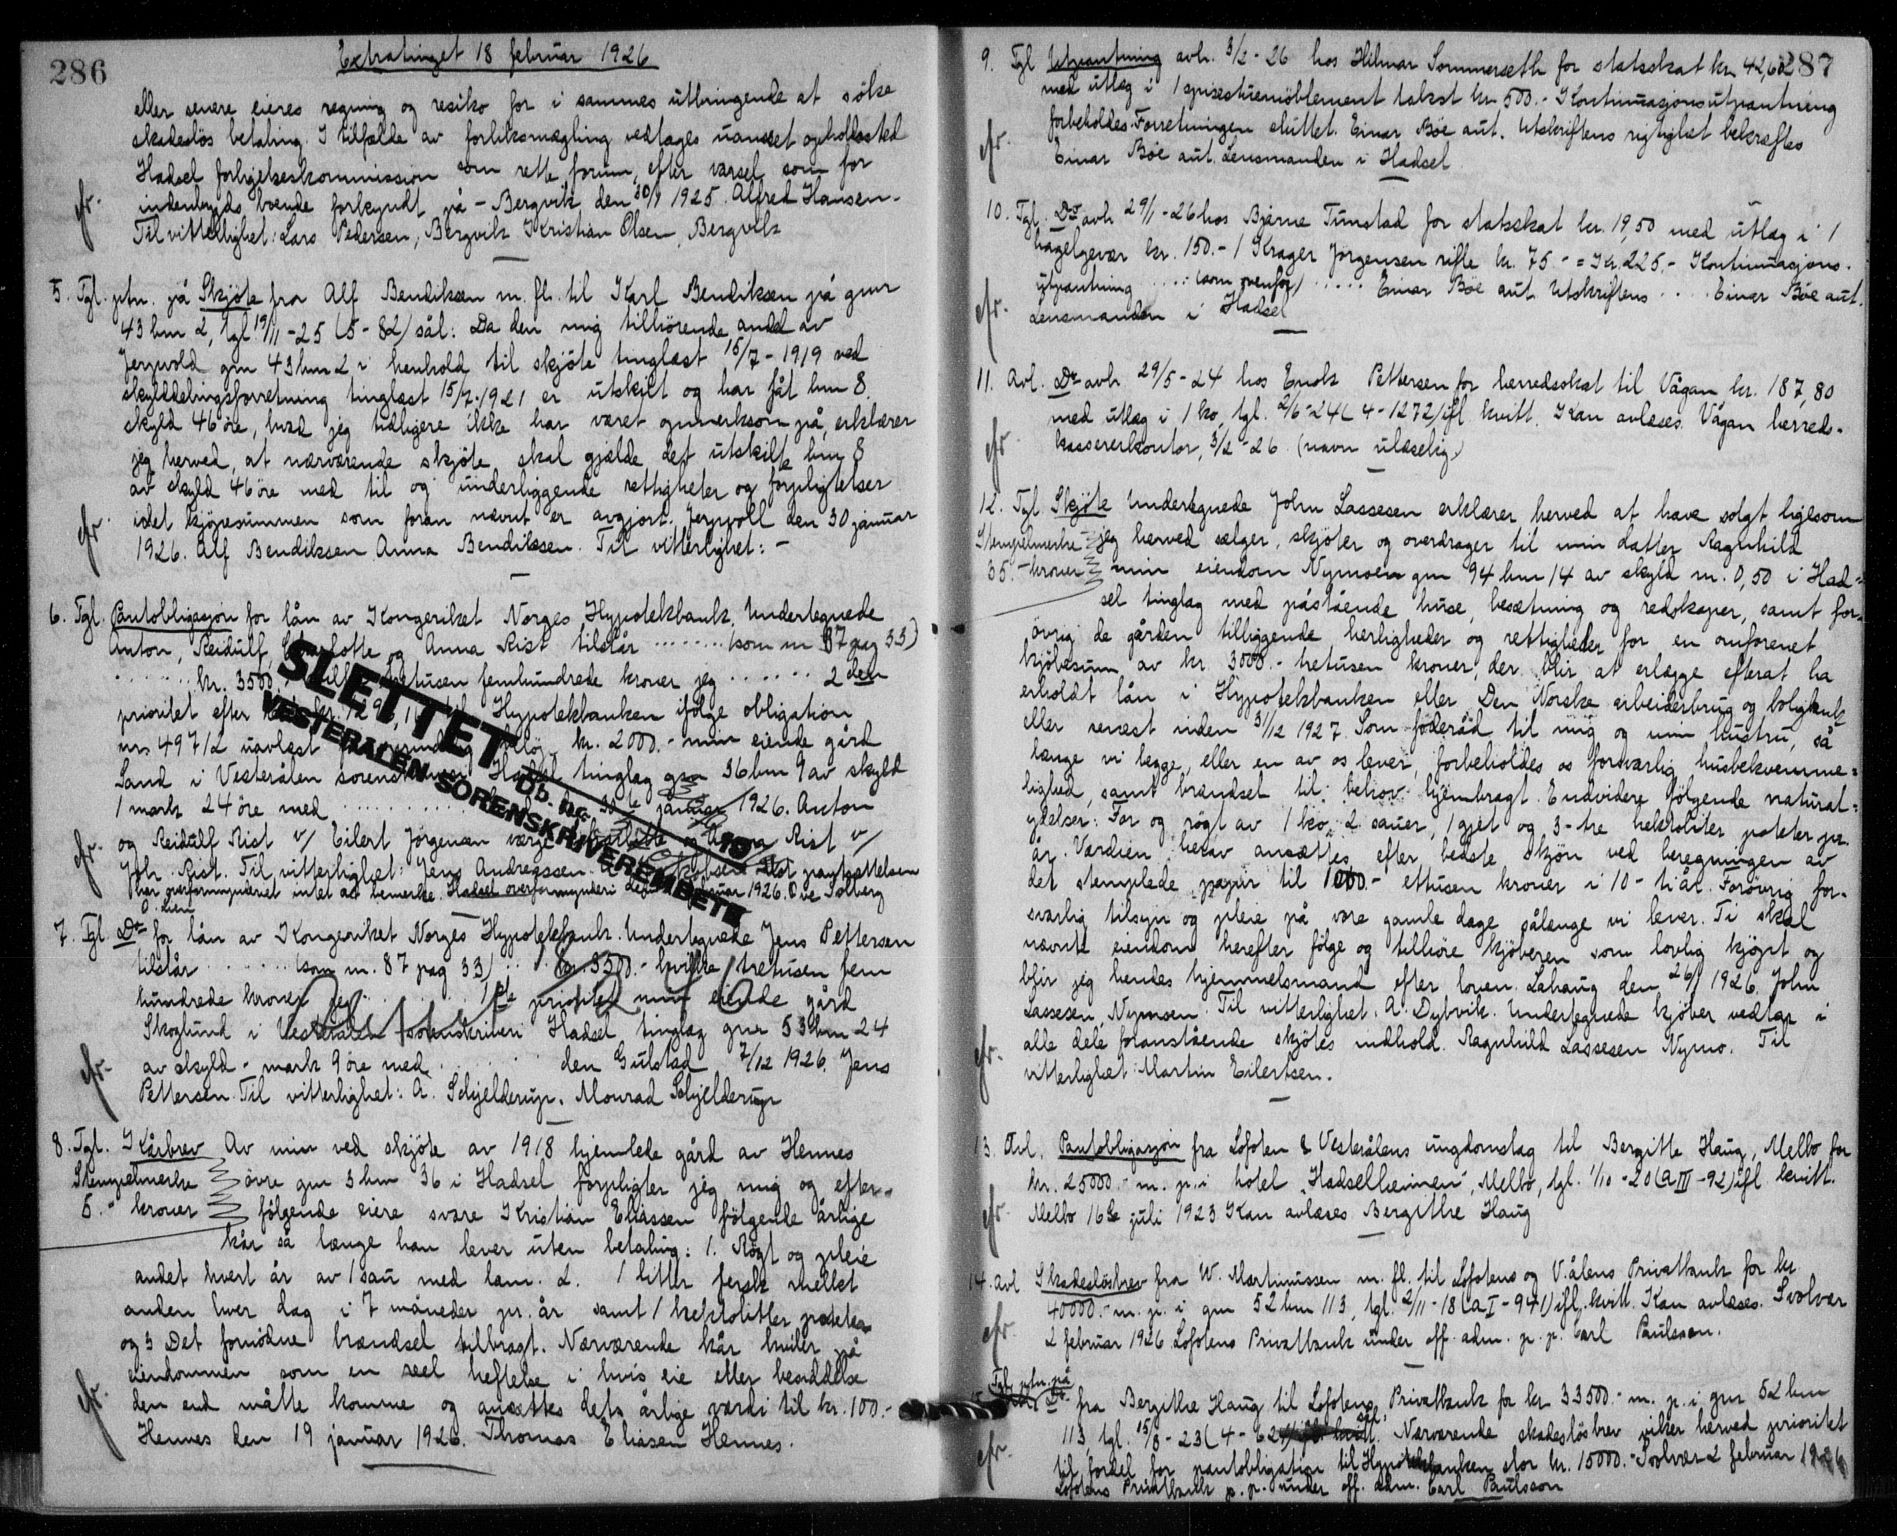 286
Extratinget 18 februar 1926
eller senere eieres regning og resiko for i sammes utbringende at söke
skadeslös betaling. I tilfælde av forliksmægling vedtages uanset opholdssted
Hadsel forligelseskommission som rette forum, efter varsel som for
indenbygds boende forkyndt på - Bergvik den 30/9 1925. Alfred Hansen.
Til vitterlighet: Lars Pedersen, Bergvik Kristian Olsen, Bergvik
5. Tgl. ptn. på Skjöte fra Alf Bendiksen m. fl. til Karl Bendiksen på gnr
43 bnr 2, tgl 19/11-25 (5-82) sål: Da den mig tilhörende andel av
Jerpvold gnr 43 bnr 2 i henhold til skjöte tinglæst 15/7-1919 ved
skylddelingsforretning tinglæst 15/7-1921 er utskilt og har fåt bnr 8
skyld 46 öre, hvad jeg tidligere ikke har været opmerksom på, erklærer
jeg herved, at nærværende skjöte skal gjælde det utskilte bnr 8
av skyld 46 öre med til og underliggende rettigheter og forpligtelser
idet kjöpesummen som foran nævnt er avgjort. Jerpvoll den 30 januar
1926. Alf Bendiksen Anna Bendiksen. Til vitterlighet: -
6. Tgl. Pantobligasjon for lån av Kongeriket Norges Hypotekbank. Undertegnede
Anton, Reidulf, Charlotte og Anna Rist tilstår ........ (som nr 87 pag 33)
....... kr. 3500.- hvilke tretusen femhundrede kroner jeg ....... 2den
prioritet efter Hypotekbanken ifölge obligation
nr. 497/2 uavlæst kr. 2000.- min eiende gård
Sand i Vesterålen sorenskriveri Hadsel tinglag gnr 36 bnr 9 av skyld
1 mark 24 öre med ........ januar 1926. Anton
og Reidulf Rist v/ Eilert Jörgensen værge Charlotte og Anna Rist v/
Joh. Rist. Til vitterlighet: Jens Andreassen. Mot pantsettelsen
har overformynderiet intet at bemerke. Hadsel overformynderi den februar 1926. Ove Solberg
O. Lien
SLETTET
Db. nr. 19
VESTERÅLEN SORENSKRIVEREMBETE
7. Tgl. Do for lån av Kongeriket Norges Hypotekbank. Undertegnede Jens Pettersen
tilstår ....... (som nr. 87 pag 33) ... kr. 3500.- hvilke tretusen fem
hundrede kroner jeg ....... 1ste prioritet min eiende gård
Skoglund i Vesterålen sorenskriveri Hadsel tinglag gnr 53 bnr 24
av skyld - mark 9 öre med ....... den Gulstad 7/12 1926. Jens
Pettersen. Til vitterlighet: A. Schjelderup. Monrad Schjelderup
8. Tgl. Kårbrev Av min ved skjöte av 1918 hjemlede gård av Hennes
Stempelmerke övre gnr 3 bnr 36 i Hadsel forpligter jeg mig og efter-
5.- kroner fölgende eiere svare Kristian Eliassen fölgende årlige
kår så længe han lever uten betaling: 1. Rögt og pleie
andet hvert år av 1 sau med lam. 2. 1 litter fersk melket
anden hver dag i 7 måneder pr. år samt 1 hektolitter poteter
og 3 Det fornödne brændsel tilbragt. Nærværende kår hviler på
eiendommen som en reel heftelse i hvis eie eller besiddelse
den end måtte komme og ansættes dets årlige værdi til kr. 100.-
Hennes den 19 januar 1926. Thomas Eliasen Hennes.
287
9. Tgl Utpantning avh. 3/2-26 hos Hilmar Sommerseth for statsskat kr. 42,60
med utlæg i 1 spisestuemöblement takst kr. 500.- Kontinuasjonsutpantning
forbeholdes. Forretningen sluttet. Einar Böe aut. Utskriftens rigtighet bekræftes
Einar Böe aut. Lensmanden i Hadsel
10. Tgl. Do avh 29/1-26 hos Bjarne Tunstad for statsskat kr. 19,50 med utlæg i 1
hagelgevær kr. 150.- 1 Krager Jörgensen rifle kr. 75.- = Kr. 225.- Kontinuasjons-
utpantning ..... (som ovenfor) ..... Einar Böe aut. Utskriftens .... Einar Böe aut.
Lensmanden i Hadsel
11. Avl. Do avh 29/5-24 hos Enok Pettersen for herredsskat til Vågan kr. 187,80
med utlæg i 1 ko, tgl. 2/6-24 (4-1272) ifl. kvitt. Kan avlæses. Vågan herreds-
kassererkontor, 3/2-26. (navn ulæselig)
12. Tgl. Skjöte Undertegnede John Lassesen erklærer herved at have solgt ligesom
Stempelmerke jeg herved sælger, skjöter og overdrager til min datter Ragnhild
35.- kroner min eiendom Nymoen gnr 94 bnr 14 av skyld m. 0,50 i Had-
sel tinglag med påstående huse, besætning og redskaper, samt for-
övrig de gården tilliggende herligheder og rettigheder for en omforenet
kjöbesum av kr. 3000.- tretusen kroner, der blir at erlægge efterat ha
erholdt lån i Hypotekbanken eller Den Norske arbeiderbrug og boligbank
eller senest inden 31/12 1927. Som föderåd til mig og min hustru, så
længe vi begge, eller en av os lever, forbeholdes os forsvarlig husbekvemme-
lighed, samt brændsel til behov hjembragt. Endvidere fölgende natural-
ydelser: For og rögt av 1 ko, 2 sauer, 1 gjet og 3-tre hektoliter poteter pr.
år. Værdien herav ansættes efter bedste skjön ved beregningen av
det stemplede papir til 1000.- ettusen kroner i 10- ti år. Forövrig for-
svarlig tilsyn og pleie på vore gamle dage sålænge vi lever. Ti skal
nævnte eiendom herefter fölge og tilhöre kjöberen som lovlig kjöpt og
blir jeg hendes hjemmelsmand efter loven. Lahaug den 26/1 1926. John
Lassesen, Nymoen. Til vitterlighet. A. Dybvik. Undertegnede kjöber vedtar i
alle dele foranstående skjötes indhold. Ragnhild Lassesen Nymo. Til
vitterlighet: Martin Eilertsen.
13. Avl. Pantobligasjon fra Lofoten & Vesterålens ungdomslag til Bergitte Haug, Melbo for
kr. 25000.- m. p. i hotel "Hadselheimen", Melbo, tgl. 1/10-20 (a III-92) ifl kvitt.
Melbo 16de juli 1923 Kan avlæses Bergithe Haug
14. avl Skadeslösbrev fra W. Martinussen m. fl. til Lofotens og V.ålens Privatbank for kr.
40000.- m. p. i gnr 52 bnr 113, tgl. 2/11-18 (a I-941) ifl. kvitt. Kan avlæses. Svolvær
2 februar 1926 Lofotens Privatbank under off. adm. p. p. Carl Paulsson.
Tgl ptn. på
15. Do. fra Bergithe Haug til Lofotens Privatbank for kr 33500.- m. p. i gnr 52 bnr
113, tgl. 15/8-23 (4-62 sål. Nærværende skadeslösbrev viker herved prioritet
til fordel for pantobligation til Hypotekbanken stor kr. 15000.- Svolvær 2 februar 1926
Lofotens Privatbank p. p. under off. adm. Carl Paulsson